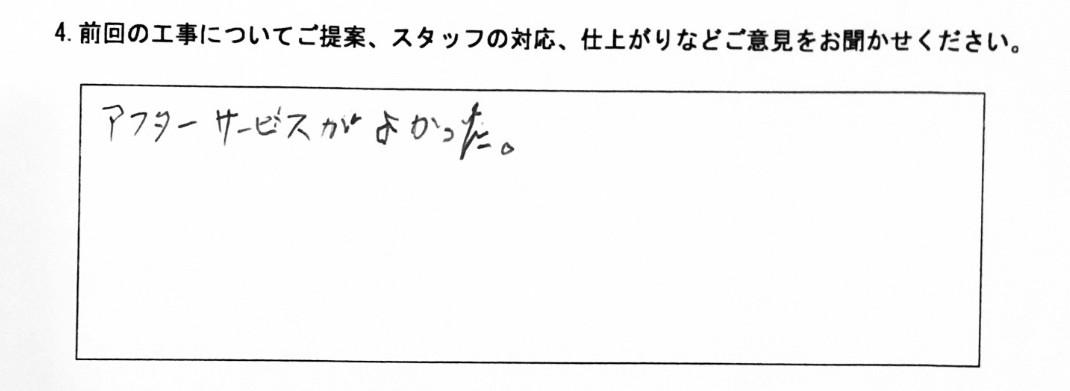 4. 前回の工事についてご提案、スタッフの対応、仕上がりなどご意見をお聞かせください。
アフターサービスがよかった。